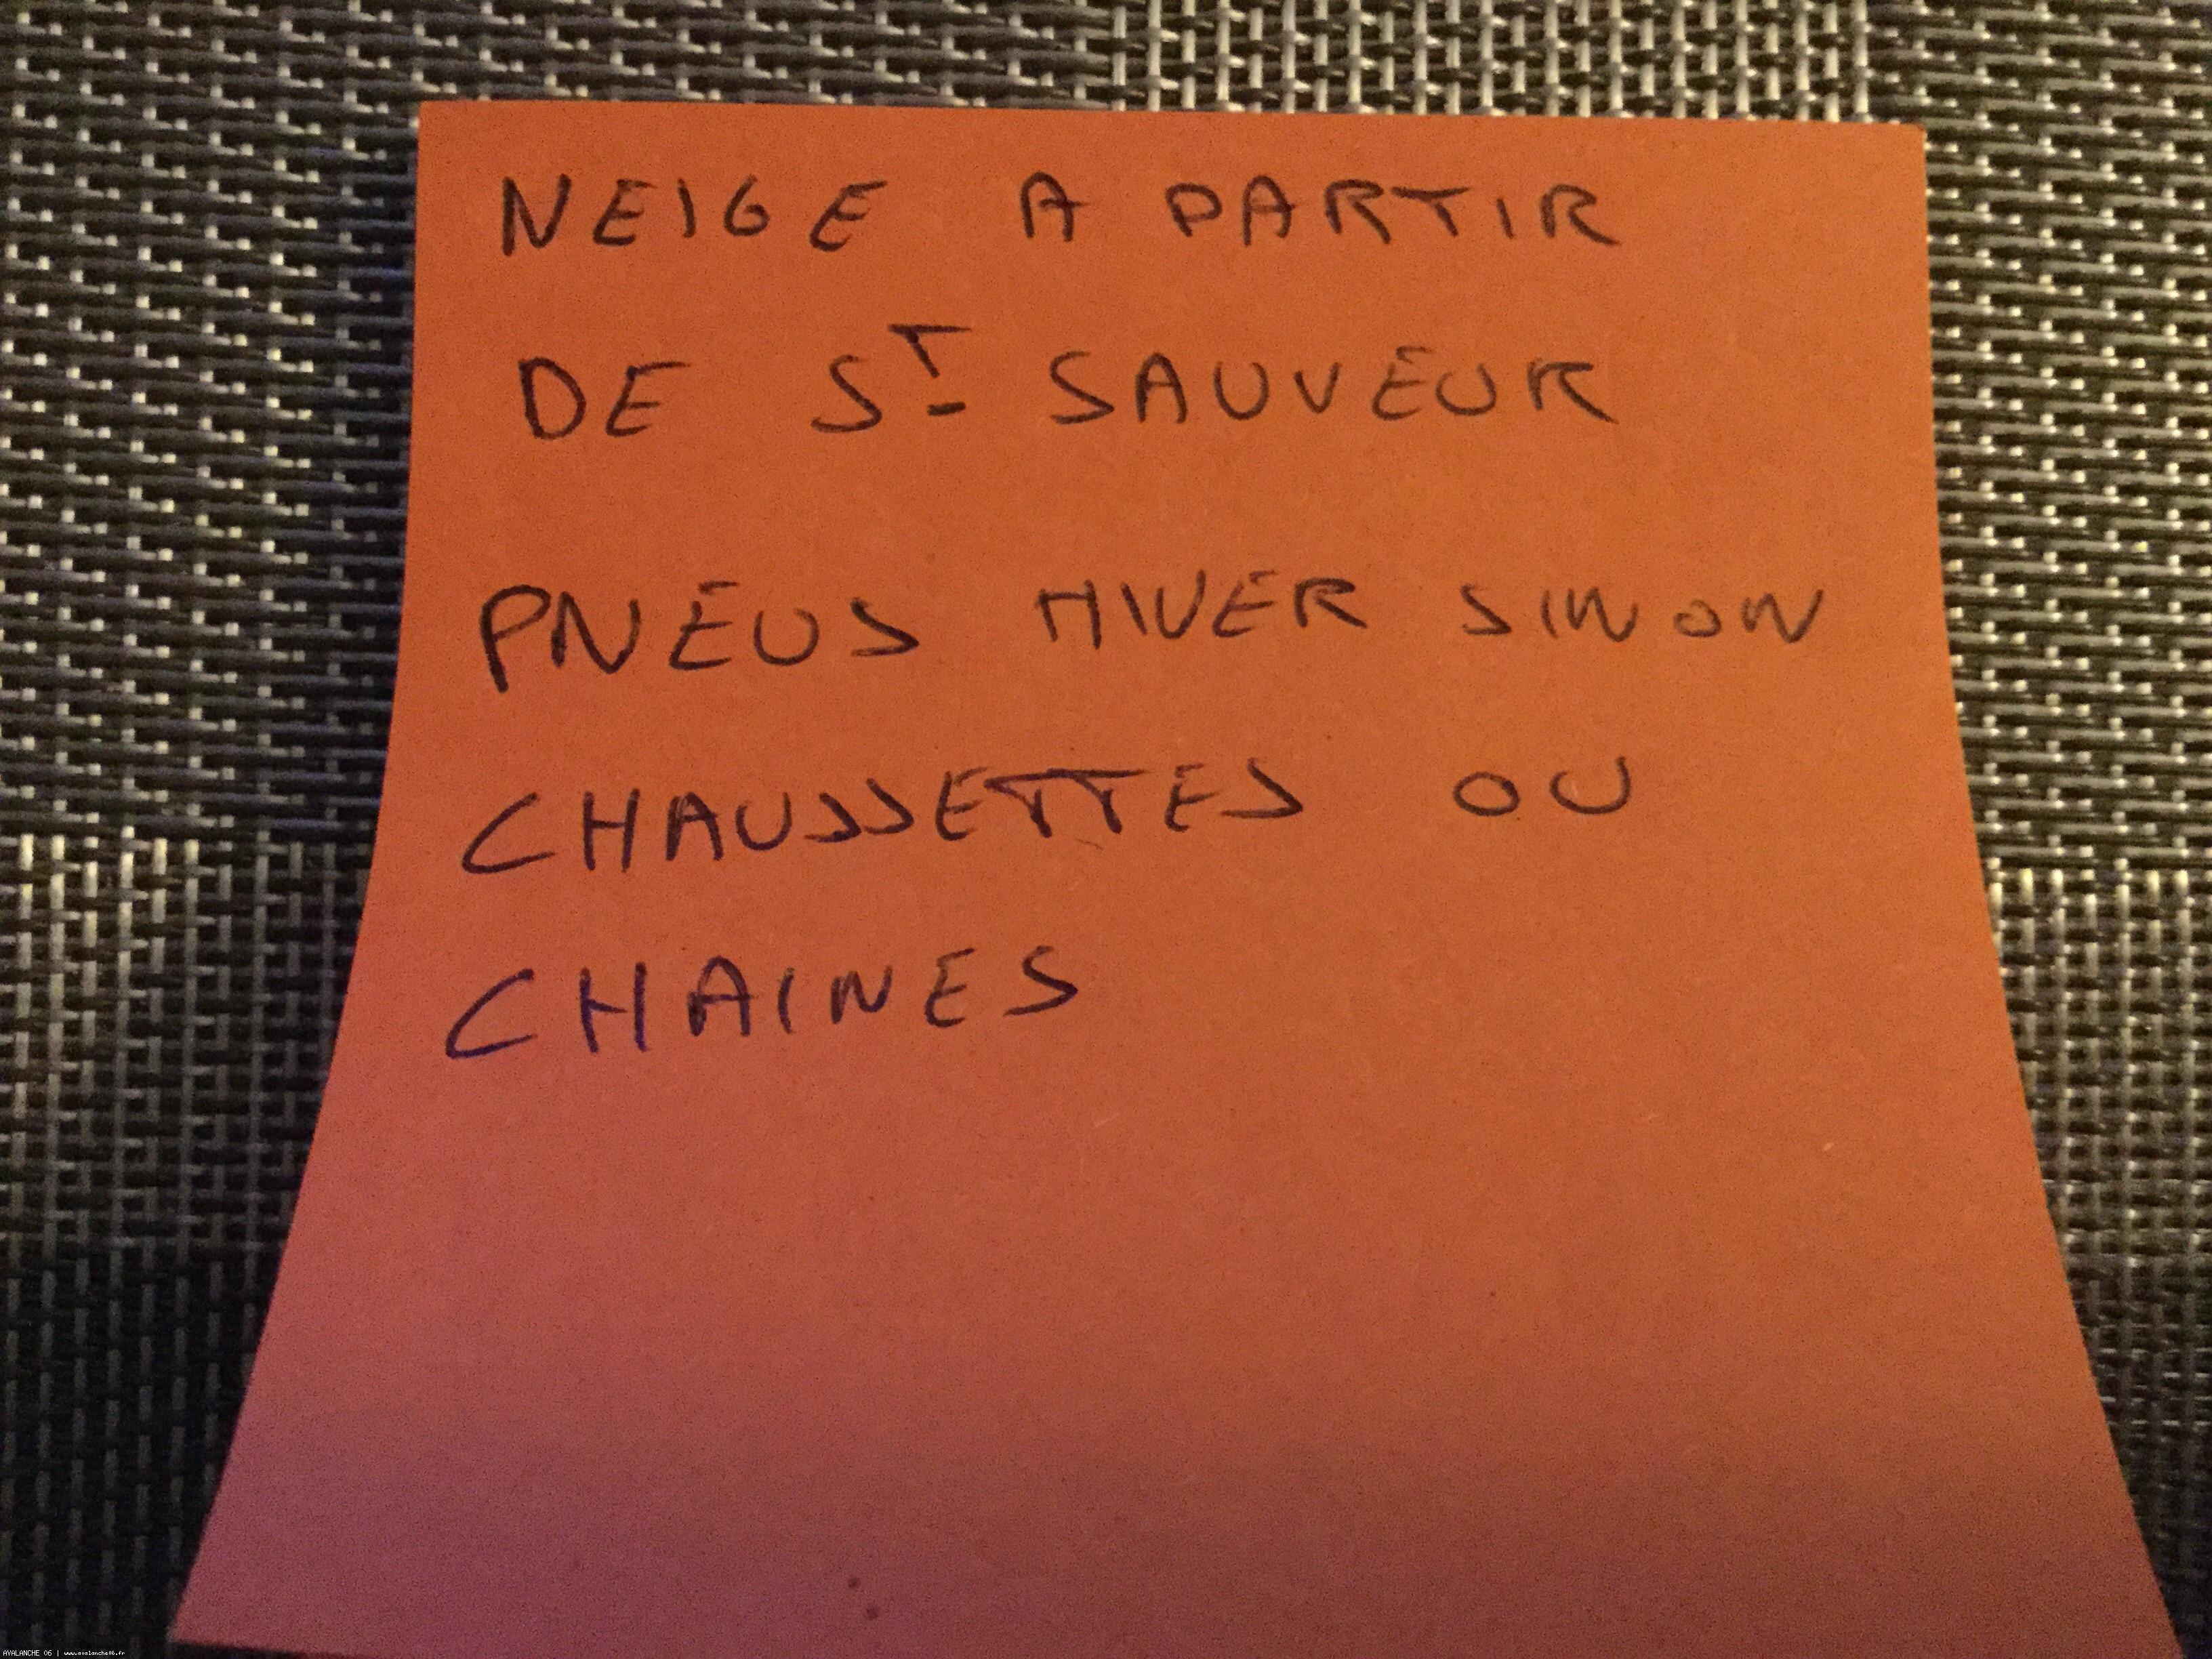 NEIGE A PARTIR
DE ST SAUVEUR
PNEUS HIVER SINON
CHAUSSETTES OU
CHAINES
AVALANCHE 06 | www.avalanche06.fr